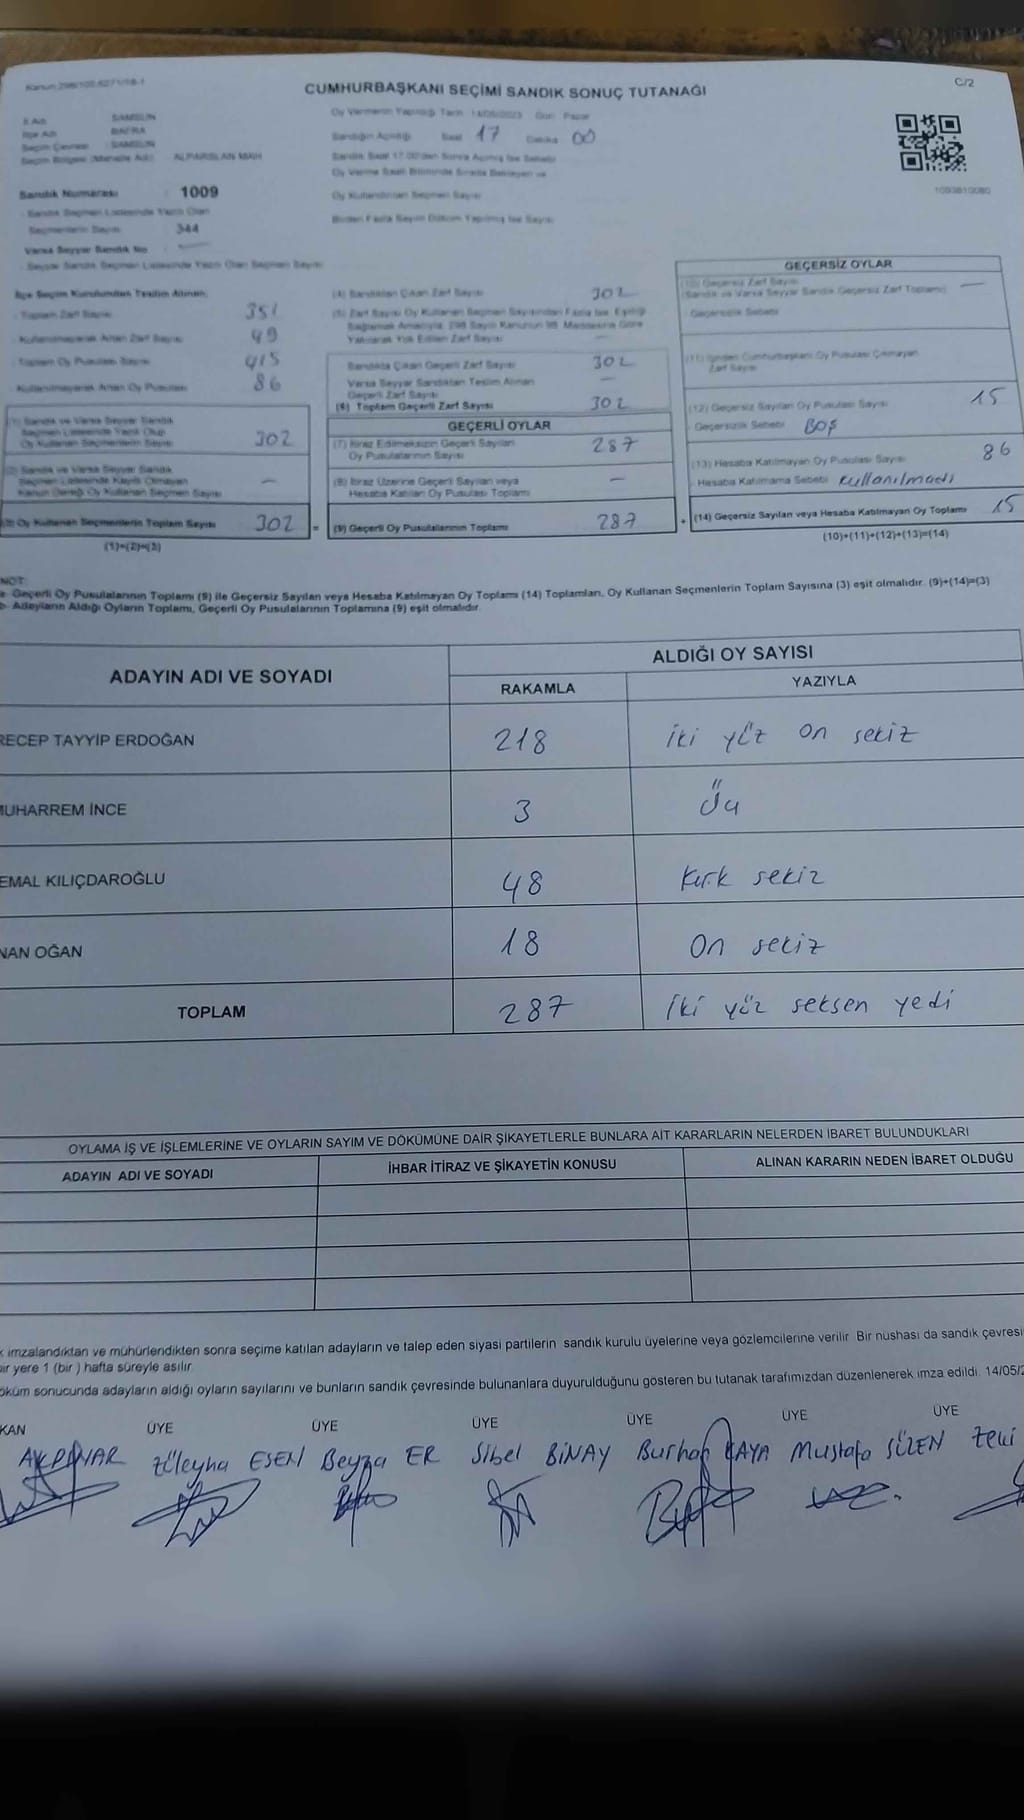 Kanun:298/105-6271/18-1
CUMHURBAŞKANI SEÇİMİ SANDIK SONUÇ TUTANAĞI
C/2
İl Adı SAMSUN
İlçe Adı BAFRA
Seçim Çevresi : SAMSUN
Seçim Bölgesi (Mahalle Adı) ALPARSLAN MAH.
Oy Vermenin Yapıldığı Tarih 14/05/2023 Gün Pazar
Sandığın Açıldığı Saat 17 Dakika 00
Sandık Saat 17.00'den Sonra Açılmış İse Sebebi
Oy Verme Saati Bitiminde Sırada Bekleyen ve
Oy Kullandırılan Seçmen Sayısı
Birden Fazla Sayım Döküm Yapılmış İse Sayısı
Sandık Numarası : 1009
Sandık Seçmen Listesinde Yazılı Olan
Seçmenlerin Sayısı 344
Varsa Seyyar Sandık No
Seyyar Sandık Seçmen Listesinde Yazılı Olan Seçmen Sayısı
İlçe Seçim Kurulundan Teslim Alınan;
Toplam Zarf Sayısı 351
Kullanılmayarak Artan Zarf Sayısı 49
Toplam Oy Pusulası Sayısı 415
Kullanılmayarak Artan Oy Pusulası 86
(1) Sandık ve Varsa Seyyar Sandık
Seçmen Listesinde Kayıtlı Olup
Oy Kullanan Seçmenlerin Sayısı 302
(2) Sandık ve Varsa Seyyar Sandık
Seçmen Listesinde Kayıtlı Olmayan
Kanun Gereği Oy Kullanan Seçmen Sayısı –
(3) Oy Kullanan Seçmenlerin Toplam Sayısı 302 =
(1)+(2)=(3)
(4) Sandıktan Çıkan Zarf Sayısı 302
(5) Zarf Sayısı Oy Kullanan Seçmen Sayısından Fazla İse, Eşitliği
Sağlamak Amacıyla, 298 Sayılı Kanunun 98. Maddesine Göre
Yakılarak Yok Edilen Zarf Sayısı –
Sandıkta Çıkan Geçerli Zarf Sayısı 302
Varsa Seyyar Sandıktan Teslim Alınan
Geçerli Zarf Sayısı –
(6) Toplam Geçerli Zarf Sayısı 302
GEÇERLİ OYLAR
(7) İtiraz Edilmeksizin Geçerli Sayılan
Oy Pusulalarının Sayısı 287
(8) İtiraz Üzerine Geçerli Sayılan veya
Hesaba Katılan Oy Pusulası Toplamı –
(9) Geçerli Oy Pusulalarının Toplamı 287 +
GEÇERSİZ OYLAR
(10) Geçersiz Zarf Sayısı
(Sandık ve Varsa Seyyar Sandık Geçersiz Zarf Toplamı) –
Geçersizlik Sebebi
(11) İçinden Cumhurbaşkanı Oy Pusulası Çıkmayan
Zarf Sayısı
(12) Geçersiz Sayılan Oy Pusulası Sayısı 15
Geçersizlik Sebebi BOŞ
(13) Hesaba Katılmayan Oy Pusulası Sayısı 86
Hesaba Katılmama Sebebi Kullanılmadı
(14) Geçersiz Sayılan veya Hesaba Katılmayan Oy Toplamı 15
(10)+(11)+(12)+(13)=(14)
NOT:
a- Geçerli Oy Pusulalarının Toplamı (9) ile Geçersiz Sayılan veya Hesaba Katılmayan Oy Toplamı (14) Toplamları, Oy Kullanan Seçmenlerin Toplam Sayısına (3) eşit olmalıdır. (9)+(14)=(3)
b- Adayların Aldığı Oyların Toplamı, Geçerli Oy Pusulalarının Toplamına (9) eşit olmalıdır.
ADAYIN ADI VE SOYADI
ALDIĞI OY SAYISI
RAKAMLA YAZIYLA
RECEP TAYYİP ERDOĞAN 218 iki yüz on sekiz
MUHARREM İNCE 3 Üç
EMAL KILIÇDAROĞLU 48 Kırk sekiz
NAN OĞAN 18 On sekiz
TOPLAM 287 İki yüz seksen yedi
OYLAMA İŞ VE İŞLEMLERİNE VE OYLARIN SAYIM VE DÖKÜMÜNE DAİR ŞİKAYETLERLE BUNLARA AİT KARARLARIN NELERDEN İBARET BULUNDUKLARI
ADAYIN ADI VE SOYADI İHBAR İTİRAZ VE ŞİKAYETİN KONUSU ALINAN KARARIN NEDEN İBARET OLDUĞU
k imzalandıktan ve mühürlendikten sonra seçime katılan adayların ve talep eden siyasi partilerin sandık kurulu üyelerine veya gözlemcilerine verilir. Bir nüshası da sandık çevresi
bir yere 1 (bir ) hafta süreyle asılır.
öküm sonucunda adayların aldığı oyların sayılarını ve bunların sandık çevresinde bulunanlara duyurulduğunu gösteren bu tutanak tarafımızdan düzenlenerek imza edildi. 14/05/2
KAN ÜYE ÜYE ÜYE ÜYE ÜYE ÜYE
AKPINAR Züleyha ESEN Beyza ER Sibel BİNAY Burhan KAYA Mustafa SÜZEN Zeki